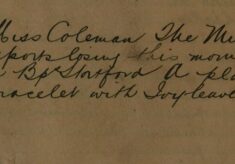 Miss Coleman The Mi
eports losing this mor
Bp Stortford A pla
racelet with Ivy leave